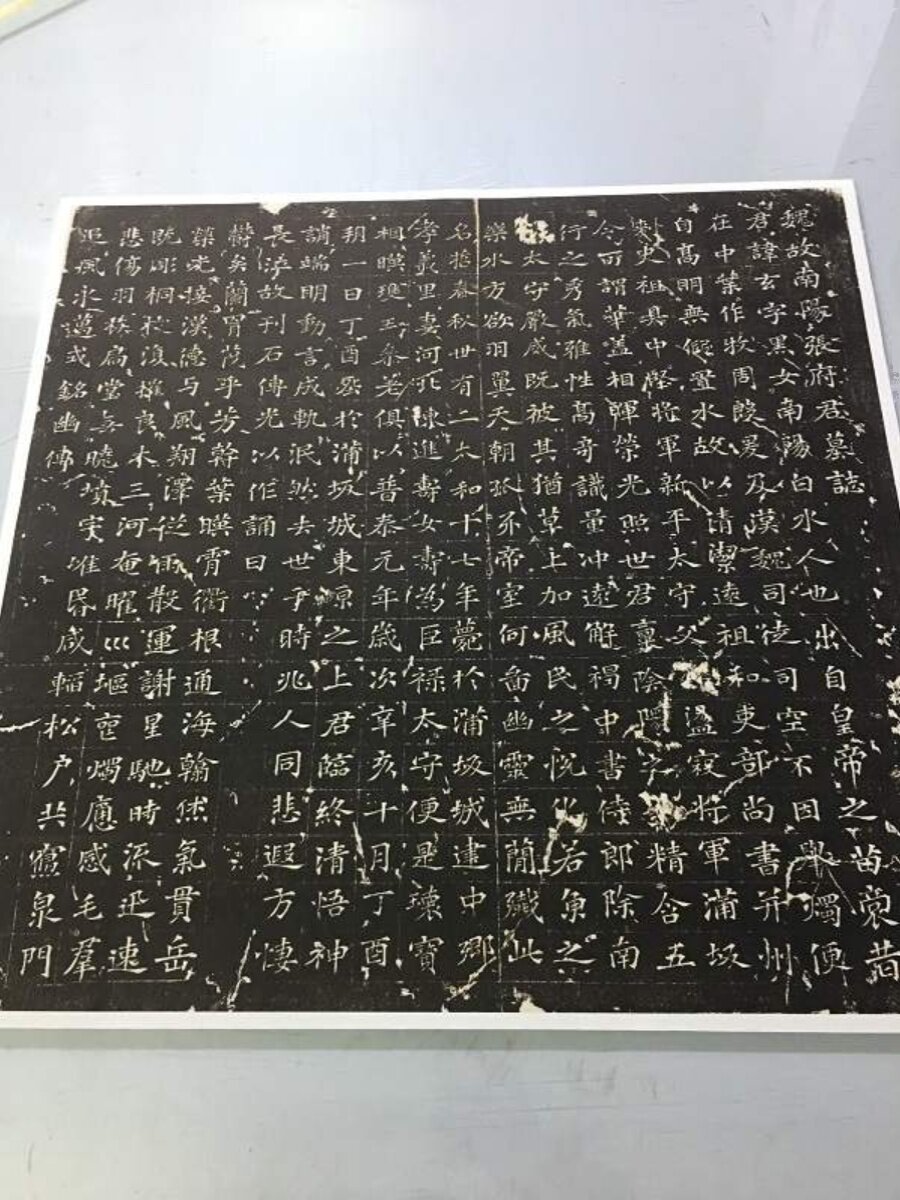 魏故南陽張府君墓誌
君諱玄字黑女南陽白水人也出自皇帝之苗裔昔
在中葉作牧周殷爰及漢魏司徒司空不因舉燭便
自高明無假置水故以清潔遠祖和吏部尚書并州
刺史祖具中堅將軍新平太守父盪寇將軍蒲坂
令所謂華蓋相暉榮光照世君稟陰陽之精含五
行之秀氣雅性高奇識量沖遠解褐中書侍郎除南
太守嚴威既被其猶草上加風民之悅化若魚之
樂水方欲羽翼天朝抓牙帝室何啚幽靈無簡殲此
名哲春秋世有二太和十七年薨於蒲坂城建中鄉
孝義里妻河北陳進壽女壽為巨祿太守便是瓌寶
相暎瓊玉參差俱以普泰元年歲次辛亥十月丁酉
朔一日丁酉葬於蒲坂城東原之上君臨終清悟神
誚端明動言成軌泯然去世于時兆人同悲遐方悽
長泣故刊石傳光以作誦曰
欝矣蘭胄茂乎芳幹葉暎霄衢根通海翰休氣貫岳
榮光接漢德与風翔澤從雨散運謝星馳時流迅速
既彫桐枝復摧良木三河奄曜巛堀喪燭感毛羣
悲傷羽族扃堂無曉墳宇唯昬咸輀松户共寢泉門
追風永邁式銘幽傳